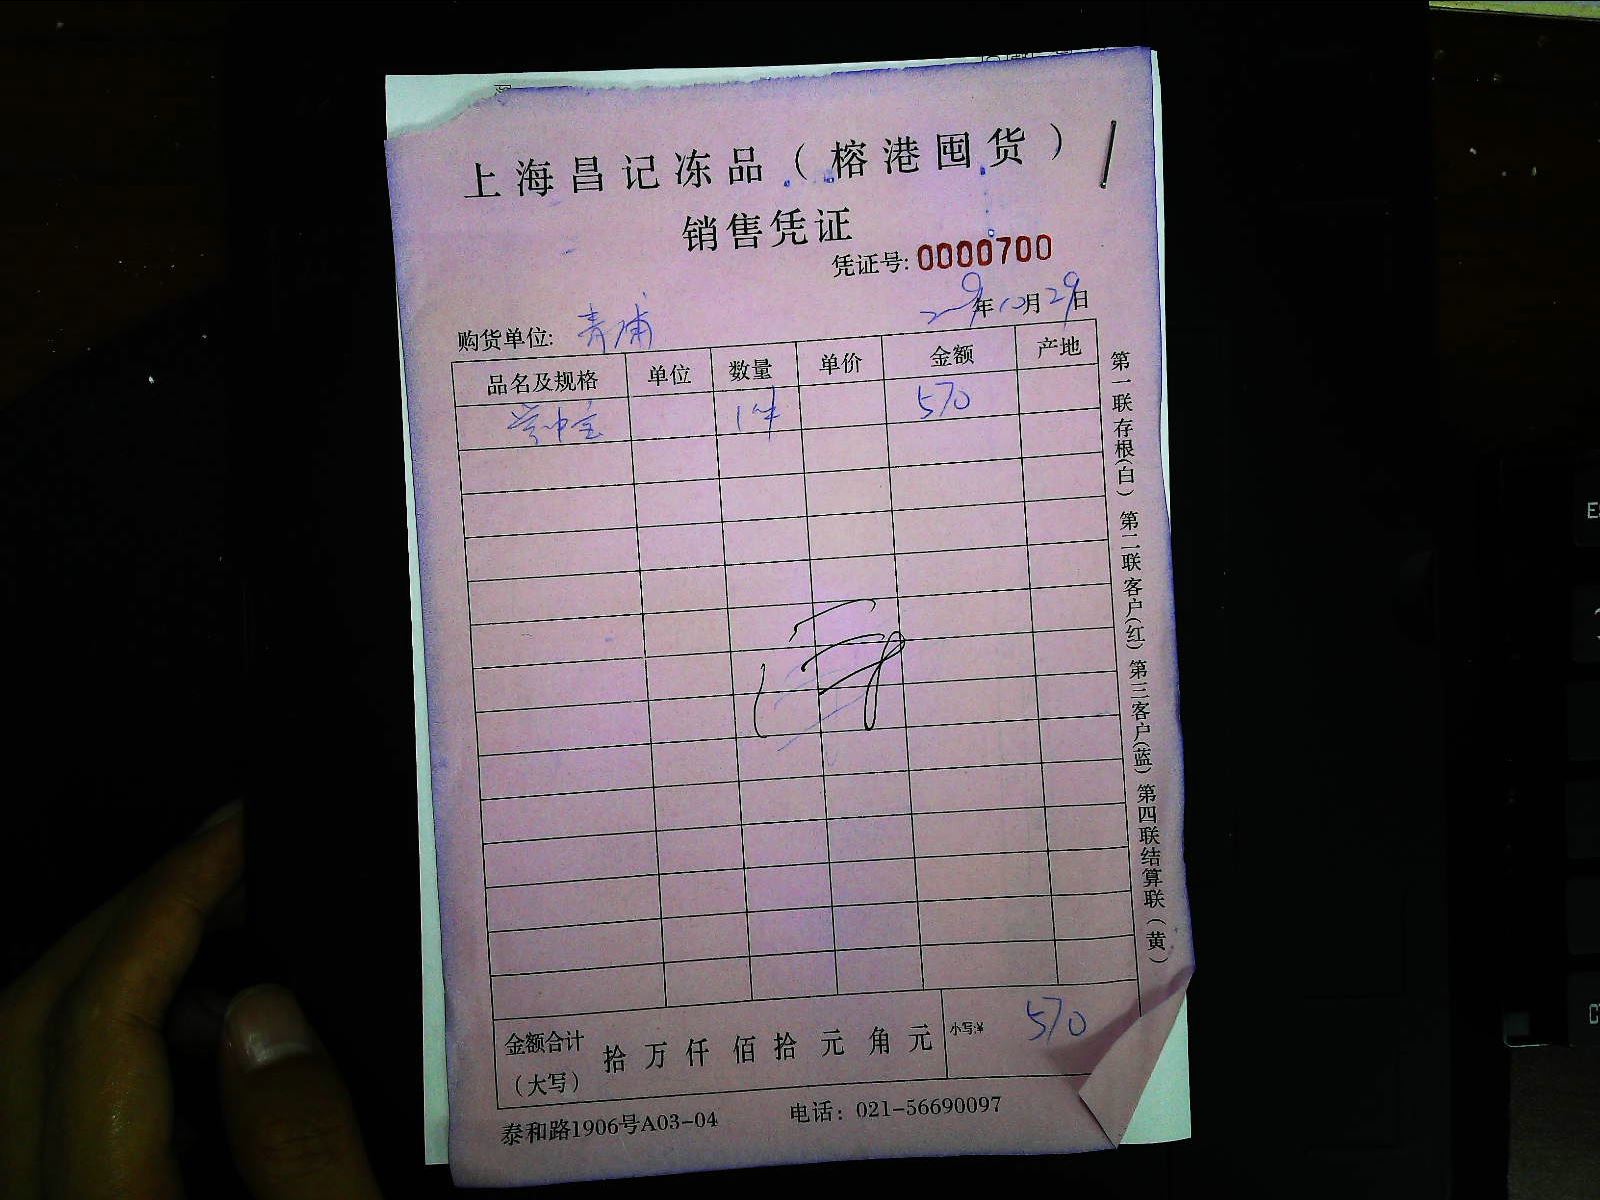 上海昌记冻品（榕港囤货）
销售凭证
凭证号: 0000700
年10月29日
购货单位: 青浦
品名及规格 单位 数量 单价 金额 产地
1件 570
第一联存根(白) 第二联客户(红) 第三客户(蓝) 第四联结算联(黄)
金额合计（大写） 拾 万 仟 佰 拾 元 角 元 小写:¥ 570
泰和路1906号A03-04 电话：021-56690097